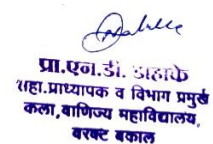 प्रा.एन.डी. डाहाके
सहा.प्राध्यापक व विभाग प्रमुख
कला, वाणिज्य महाविद्यालय,
बरबट बकाल